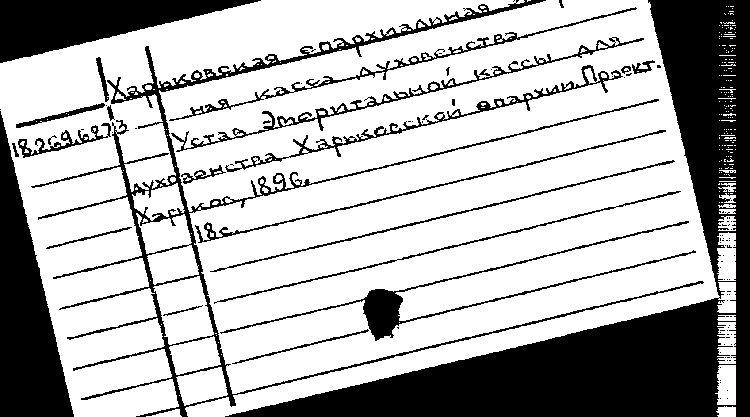 Харьковская епархиальная
ная касса духовенства.
18.269.6273
Устав Эмеритальной кассы для
духовенства Харьковской епархии. Проект.
Харьков, 1896.
18с.